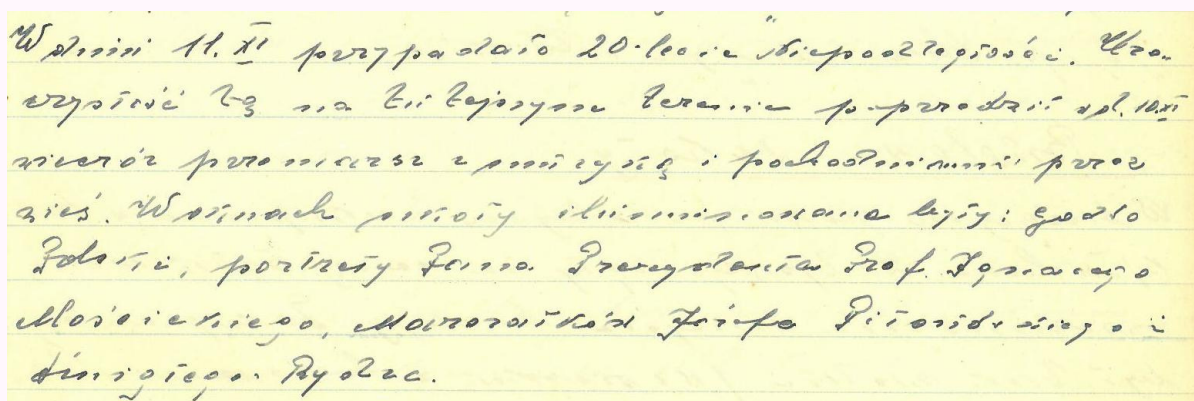 W dniu 11.XI przypadało 20-lecie Niepodległości. Uro-
czystość tą na tutejszym terenie poprzedził w d. 10.XI
wieczór przemarsz z muzyką i pochodniami przez
wieś. W oknach szkoły iluminowane były: godło
Polski, portrety Pana Prezydenta Prof. Ignacego
Mościckiego, Marszałków Józefa Piłsudskiego i
Śmigłego-Rydza.